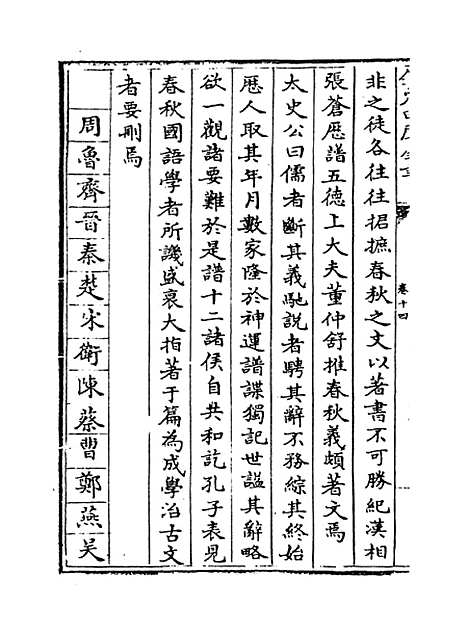 非之徒各往往捃摭春秋之文以著書不可勝紀漢相
張蒼歴譜五德上大夫董仲舒推春秋義頗著文焉
太史公曰儒者斷其義馳說者騁其辭不務綜其終始
歴人取其年月數家隆於神運譜諜獨記世諡其辭略
欲一觀諸要難於是譜十二諸侯自共和訖孔子表見
春秋國語學者所譏盛衰大指著于篇為成學治古文
者要刪焉
周魯齊晉秦楚宋衛陳蔡曹鄭燕吳
卷十四